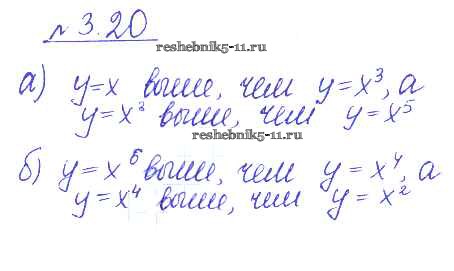 № 3.20
reshebnik5-11.ru
а) y=x выше, чем y=x³, а
y=x³ выше, чем y=x⁵
reshebnik5-11.ru
б) y=x⁶ выше, чем y=x⁴, а
y=x⁴ выше, чем y=x²